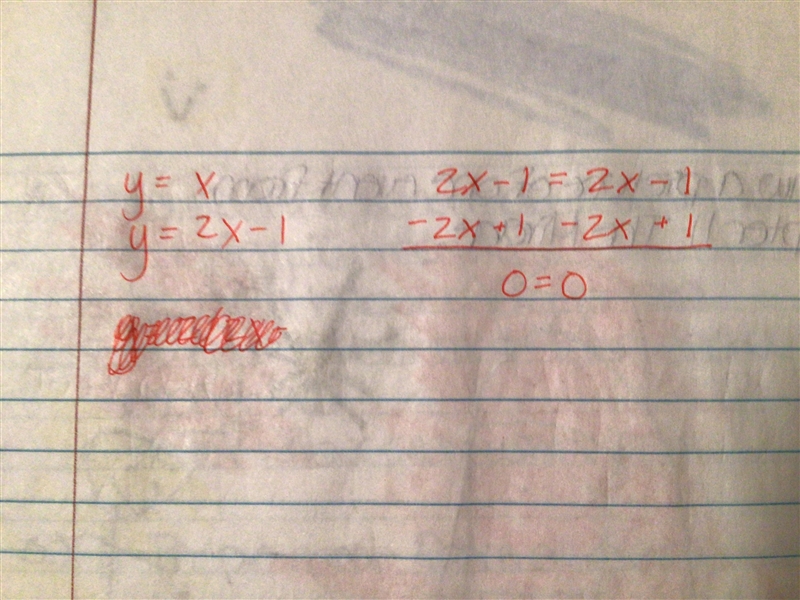 y = x
y = 2x - 1
2x - 1 = 2x - 1
-2x + 1 -2x + 1
0 = 0